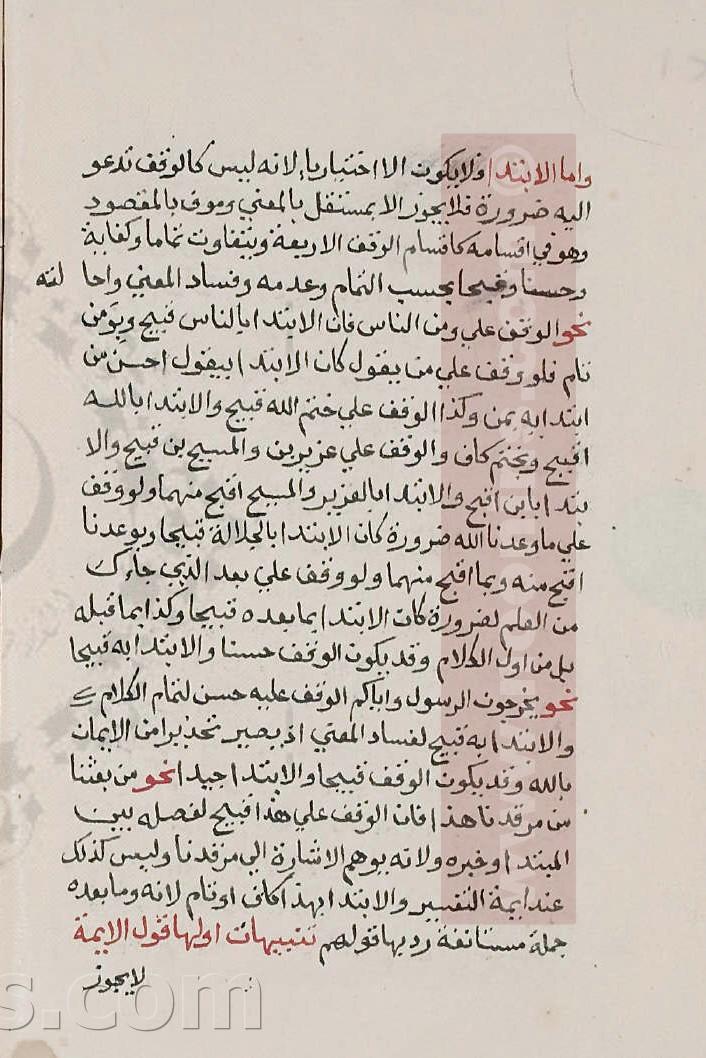 واما الابتدا فلا يكون الا اختياريا لانه ليس كالوقف تدعو
اليه ضرورة فلا يجوز الا بمستقل بالمعني وموف بالمقصود
وهو في اقسامه كاقسام الوقف الاربعة ويتفاوت تماما وكفاية
وحسنا وقبحا بحسب التمام وعدمه وفساد المعني واحا لته
نحو الوقف علي ومن الناس فان الابتدا بالناس قبيح وبومن
تام فلو وقف علي من يقول كان الابتدا بيقول احسن من
ابتدابه بمن وكذا الوقف علي ختم الله قبيح والابتدا بالله
اقبح وبختم كاف والوقف علي عزير بن والمسيح بن قبيح والا
بتدا بابن اقبح والابتدا بالعزير والمسيح اقبح منهما ولو وقف
علي ما وعدنا الله ضرورة كان الابتدا بالجلالة قبيحا وبوعدنا
اقبح منه وبما اقبح منهما ولو وقف علي بعد الذي جاءك
من العلم لضرورة كان الابتدا بما بعده قبيحا وكذا بما قبله
بل من اول الكلام وقد يكون الوقف حسنا والابتدا به قبيحا
نحو يخرجون الرسول واياكم الوقف عليه حسن لتمام الكلام
والابتدا به قبيح لفساد المعني اذ يصير تحذيرا من الايمان
بالله وقد يكون الوقف قبيحا والابتدا جيدا نحو من بعثنا
من مرقدنا هذا فان الوقف علي هذا قبيح لفصله بين
المبتدا وخبره ولانه يوهم الاشارة الي مرقدنا وليس كذلك
عند ايمة التفسير والابتدا بهذا كاف او تام لانه وما بعده
جملة مستانفة رد بها قولهم تنبيهات اولها قول الايمة
لا يجوز
s.com